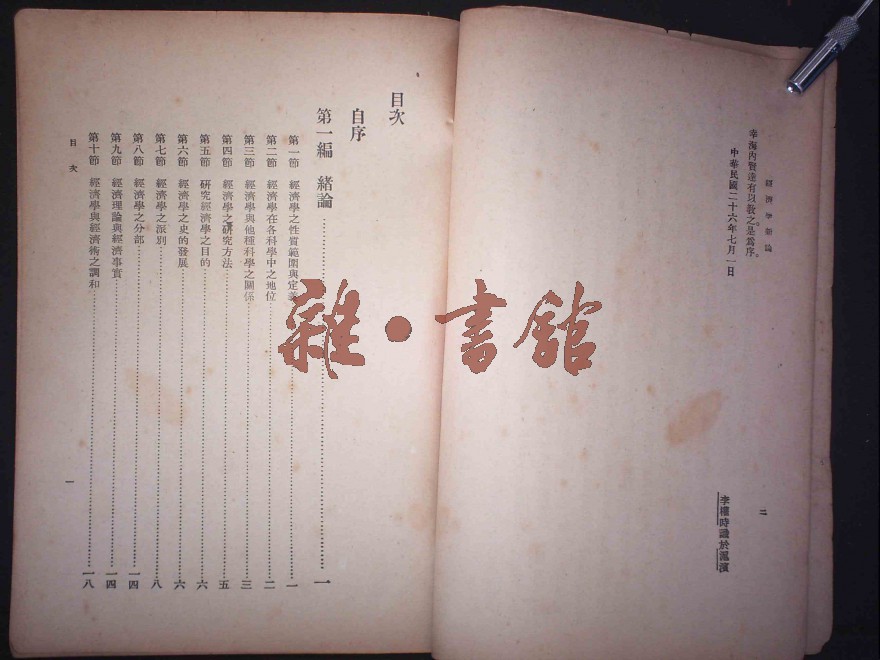 經濟學新論
幸海內賢達有以敎之。是爲序。
中華民國二十六年七月一日
李權時識於滬濱
二
目次
自序
第一編 緒論 一
第一節 經濟學之性質範圍與定義 一
第二節 經濟學在各科學中之地位 二
第三節 經濟學與他種科學之關係 三
第四節 經濟學之硏究方法 五
第五節 硏究經濟學之目的 六
第六節 經濟學之史的發展 六
第七節 經濟學之派別 八
第八節 經濟學之分部 一四
第九節 經濟理論與經濟事實 一四
第十節 經濟學與經濟術之調和 一八
目次
一
雜·書館